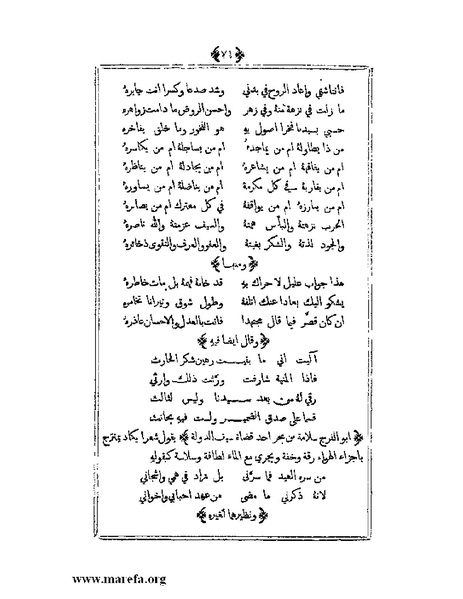 ﴿٧١﴾
فانتاشني واعاد الروح في بدني وشد صدعا وكسرا انت جابره
ما زلت في نزهة منه وفي زهر واحسن الروض ما دامت زواهره
حسبي بسيدنا فخرا اصول به هو الفخور وما خلق يفاخره
من ذا يطاوله ام من يماجده ام من يساجله ام من يكاثره
ام من يناقبه ام من يشاعره ام من يجادله ام من يناظره
ام من يقاربه في كل مكرمة ام من يناضله ام من يساوره
ام من يبارزه ام من يواقفه في كل معترك ام من يصابره
الحرب نزهته والبأس همته والسيف عزمته والله ناصره
والجود لذته والشكر بغيته والعفو والعرف والتقوى ذخائره
﴿ومنها﴾
هذا جواب عليل لا حراك به قد خانه فهمه بل مات خاطره
يشكو اليك بعادا عنك اتلفه وطول شوق ونيرانا تخامره
ان كان قصر فيما قال مجتهدا فانت بالعدل والاحسان عاذره
﴿وقال ايضا فيه﴾
آليت اني ما بقيت رهين شكر الحارث
فاذا المنية شارفت ورثت ذلك وارثي
رقي له من بعد سيدنا وليس لثالث
قسما على صدق الضمير ولست فيه بحانث
﴿ابو الفرج سلامة بن بحر احد قضاة سيف الدولة﴾ يقول شعرا يكاد يمتزج
باجزاء الهواء رقة وخفة ويجري مع الماء لطافة وسلاسة كقوله
من سره العيد فما سرني بل زاد في همي واشجاني
لانه ذكرني ما مضى من عهد احبابي واخواني
﴿ونظيرهما لغيره﴾
www.marefa.org